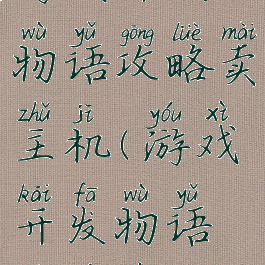 wù yǔ gōng lüè mài
物语攻略卖
zhǔ jī yóu xì
主机(游戏
kāi fā wù yǔ
开发物语